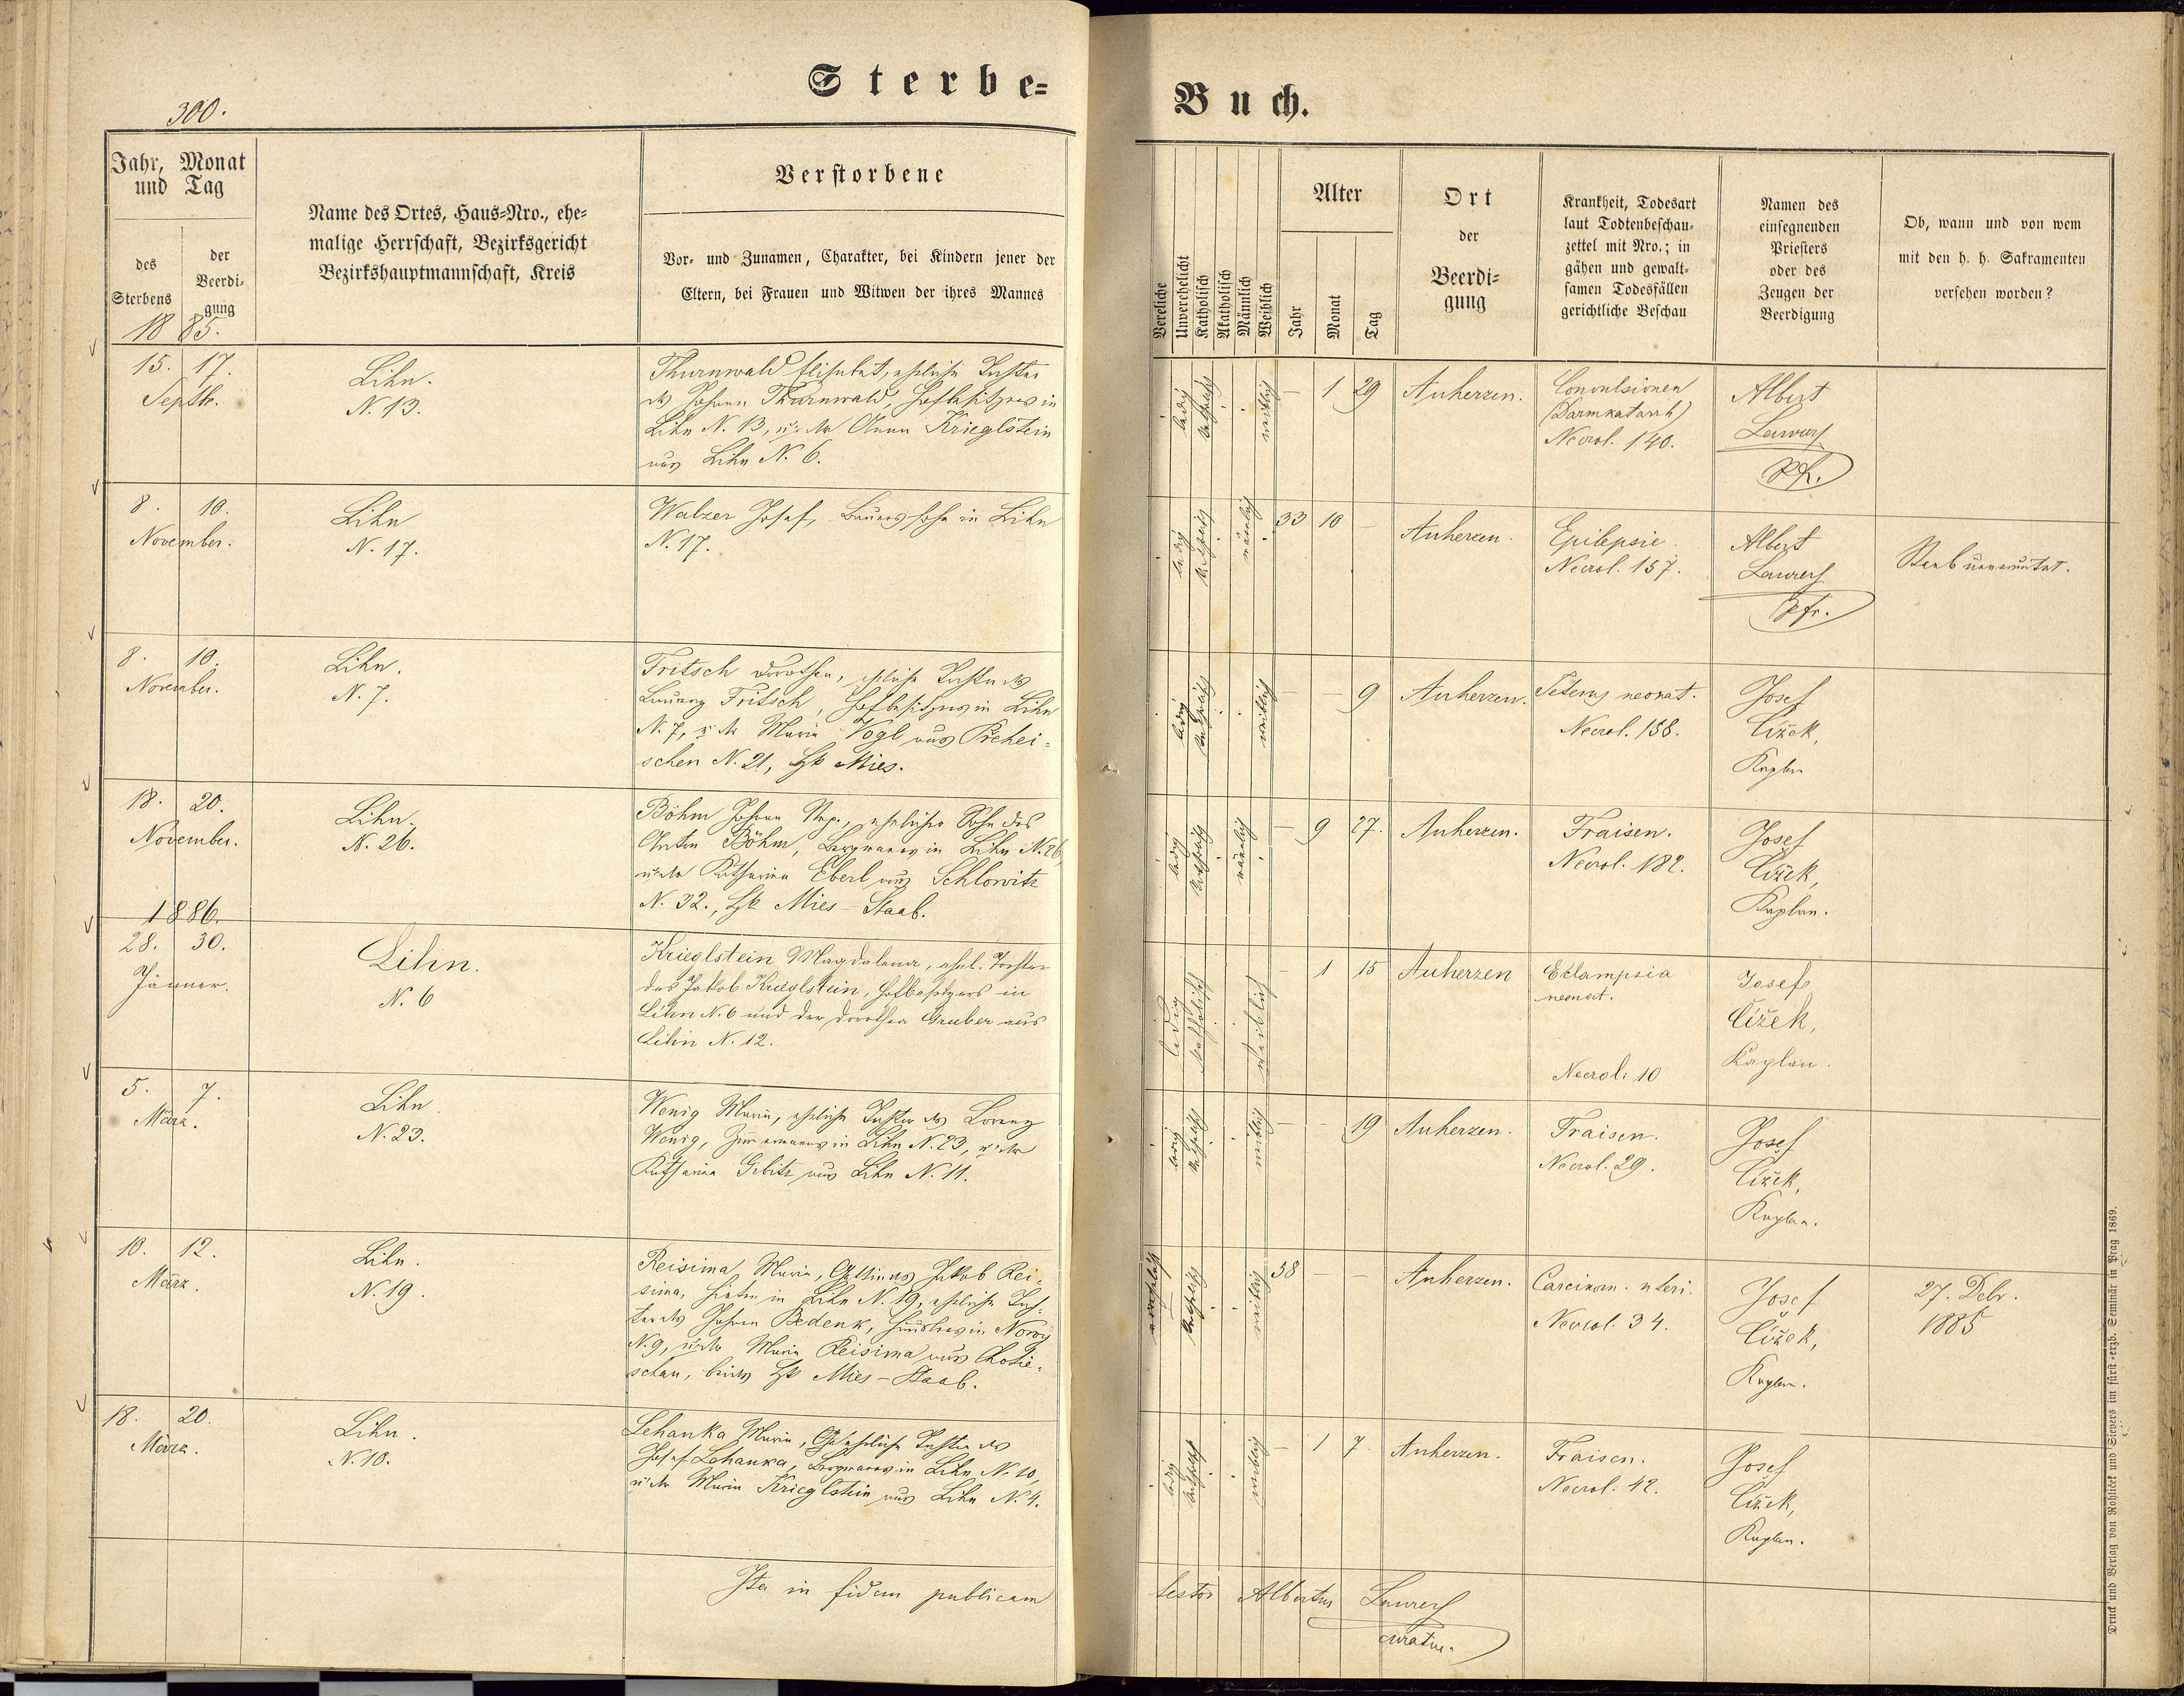 Sterbe-
Buch.
300.
Jahr, Monat
und Tag
des
Sterbens
der
Beerdi-
gung
1885.
Name des Ortes, Haus-Nro., ehe-
malige Herrschaft, Bezirksgericht
Bezirkshauptmannschaft, Kreis
Verstorbene
Vor- und Zunamen, Charakter, bei Kindern jener der
Eltern, bei Frauen und Witwen der ihres Mannes
Vereliche
Unverehelicht
Katholisch
Akatholisch
Männlich
Weiblich
Alter
Jahr
Monat
Tag
Ort
der
Beerdi-
gung
Krankheit, Todesart
laut Todtenbeschau-
zettel mit Nro.; in
gähen und gewalt-
samen Todesfällen
gerichtliche Beschau
Namen des
einsegnenden
Priesters
oder des
Zeugen der
Beerdigung
Ob, wann und von wem
mit den h. h. Sakramenten
versehen worden?
15. 17.
Septbr.
Lihn.
N. 13.
Thurnwald Elisabet, eheliche Tochter
des Johann Thurnwald, Hofbesitzers in
Lihn N. 13, u. der Anna Krieglstein
aus Lihn N. 6.
ledig katholisch weiblich
— 1 29
Auherzen.
Convulsionen
(Darmkatarrh)
Necrol. 140.
Albert
Laurer
8. 10.
November.
Lihn
N. 17.
Walzer Josef, Bauerssohn in Lihn
N. 17.
ledig katholisch männlich
33 10 —
Auherzen.
Epilepsie
Necrol. 157.
Albert
Laurer
Pfr.
Staab
8. 10.
November.
Lihn.
N. 7.
Fritsch Dorothea, eheliche Tochter des
Laurenz Fritsch, Hofbesitzers in Lihn
N. 7, u. der Maria Vogl aus Přehei-
schen N. 21, Bzk Mies.
ledig katholisch weiblich
— — 9
Auherzen.
neonat.
Necrol. 158.
Josef
Čížek,
Kaplan
18. 20.
November.
Lihn.
N. 26.
Böhm Johann Nep., ehelicher Sohn des
Anton Böhm, Bergmanns in Lihn N. 26,
u. der Katharina Eberl aus Schlowitz
N. 32., Bzk Mies-Staab.
ledig katholisch männlich
— 9 27.
Auherzen.
Fraisen.
Necrol. 182.
Josef
Čížek,
Kaplan.
1886.
28. 30.
Jänner.
Lihn.
N. 6
Krieglstein Magdalena, ehel. Tochter
des Jakob Krieglstein, Hofbesitzers in
Lihn N. 6 und der Dorothea Gruber aus
Lihn N. 12.
ledig katholisch weiblich
— 1 15
Auherzen
Eclampsia
neonat.
Necrol: 10
Josef
Čížek,
Kaplan.
5. 7.
März.
Lihn.
N. 23.
Wenig Maria, eheliche Tochter des Lorenz
Wenig, Zimmermanns in Lihn N. 23, u. der
Katharina Gibitz aus Lihn N. 11.
ledig katholisch weiblich
— — 19
Auherzen.
Fraisen.
Necrol. 29.
Josef
Čížek,
Kaplan.
10. 12.
März.
Lihn.
N. 19.
Reisima Maria, Gattin des Jakob Rei-
sima, Hirten in Lihn N. 19, eheliche Toch-
ter des Johann Bedenk, Häuslers in Nowy
N. 9, u. der Maria Reisima aus Chotie-
schau, beides Bzk Mies-Staab.
verehelicht katholisch weiblich
38 — —
Auherzen.
Carcinom. uteri.
Necrol. 34.
Josef
Čížek,
Kaplan.
27. Debr.
1885
18. 20.
März.
Lihn.
N. 10.
Lehanka Maria, eheliche Tochter des
Josef Lehanka, Bergmanns in Lihn N. 10,
u. der Maria Krieglstein aus Lihn N. 4.
ledig katholisch weiblich
— 1 7
Auherzen.
Fraisen.
Necrol. 42.
Josef
Čížek,
Kaplan.
Ita in fidem publicam
testor Albertus Laurer
curatus.
Druck und Verlag von Rohliček und Sievers im fürst-erzb. Seminär in Prag 1869.